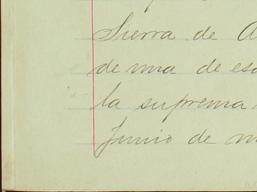 Sierra de
de una de es
la suprema
Junio de